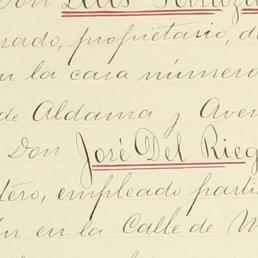 Don Luis
rado, propietario, d
n la casa número
de Aldama y Aven
Don José Del Rieg
tero, empleado parti
ín en la Calle de M